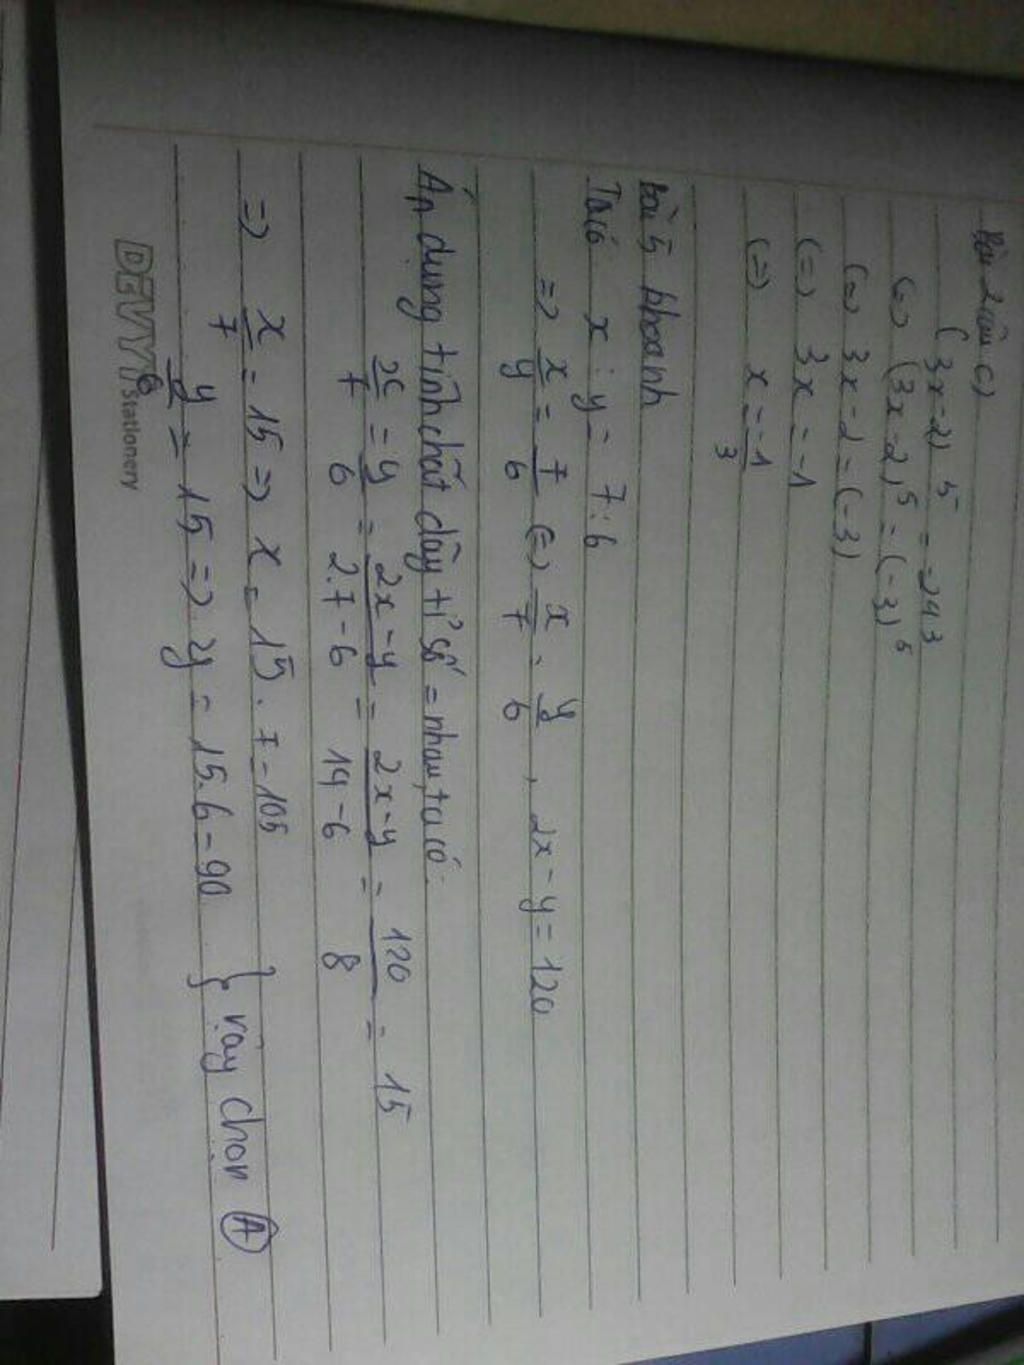 Bài 2 câu c)
(3x-2)⁵ = -243
(=) (3x-2)⁵ = (-3)⁵
(=) 3x-2 = (-3)
(=) 3x = -1
(=) x = -1/3
Bài 5 khoanh
Ta có x : y = 7 : 6
=> x/y = 7/6 (=) x/7 = y/6 , 2x - y = 120
Áp dụng tính chất dãy tỉ số = nhau, ta có:
x/7 = y/6 = 2x-y/2.7-6 = 2x-y/14-6 = 120/8 = 15
=> x/7 = 15 => x = 15.7 = 105
y/6 = 15 => y = 15.6 = 90 } vậy chọn Ⓐ
DEVYT Stationery